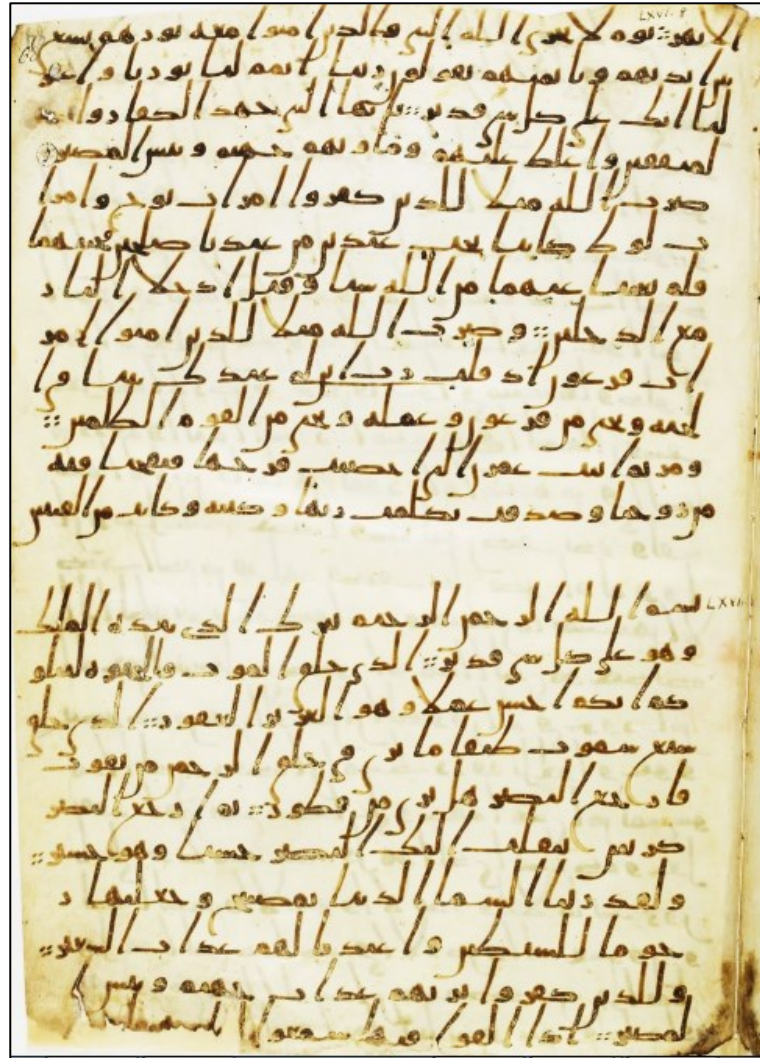 LXVI. 8
الانهر :: يوم لا يخزى الله النبى والذين امنوا معه نورهم يسعى
بين ايديهم وبايمنهم يقولون ربنا اتمم لنا نورنا واغفر
لنا انك على كل شى قدير :: يايها النبى جهد الكفار وا
لمنفقين واغلظ عليهم وماويهم جهنم وبيس المصير
ضرب الله مثلا للذين كفروا امرات نوح وامرا
ت لوط كانتا تحت عبدين من عبدنا صلحين فخنتهما
فلم يغنيا عنهما من الله شيا وقيل ادخلا النار
مع الدخلين :: وضرب الله مثلا للذين امنوا امر
ات فرعون اذ قلت رب ابن لى عندك بيتا فى ا
لجنه ونجنى من فرعون وعمله ونجنى من القوم الظلمين ::
ومريم ابنت عمرن التى احصنت فرجها فنفخنا فيه
من روحنا وصدقت بكلمت ربها وكتبه وكانت من القنتين
بسم الله الرحمن الرحيم تبرك الذى بيده الملك
وهو على كل شى قدير :: الذى خلق الموت والحيوه ليبلو
كم ايكم احسن عملا وهو العزيز الغفور :: الذى خلق
سبع سموت طبقا ما ترى فى خلق الرحمن من تفوت
فارجع البصر هل ترى من فطور :: ثم ارجع البصر
كرتين ينقلب اليك البصر خسيا وهو حسير ::
ولقد زينا السما الدنيا بمصبيح وجعلنها ر
جوما للشيطين واعتدنا لهم عذاب السعير ::
وللذين كفروا بربهم عذاب جهنم وبيس ا
لمصير :: اذا القوا فيها سمعوا